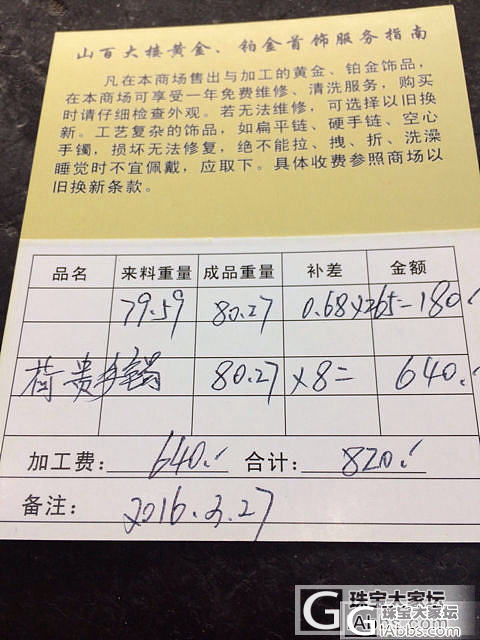 山百大楼黄金、铂金首饰服务指南
凡在本商场售出与加工的黄金、铂金饰品，
在本商场可享受一年免费维修、清洗服务，购买
时请仔细检查外观。若无法维修，可选择以旧换
新。工艺复杂的饰品，如扁平链、硬手链、空心
手镯，损坏无法修复，绝不能拉、拽、折、洗澡
睡觉时不宜佩戴，应取下。具体收费参照商场以
旧换新条款。
品名 来料重量 成品重量 补差 金额
79.59 80.27 0.68×265=180
荷 贵 手镯 80.27 ×8= 640
加工费: 640 合计: 820
备注: 2016.3.27
珠宝大家坛
珠宝大家坛
iAbbs.com